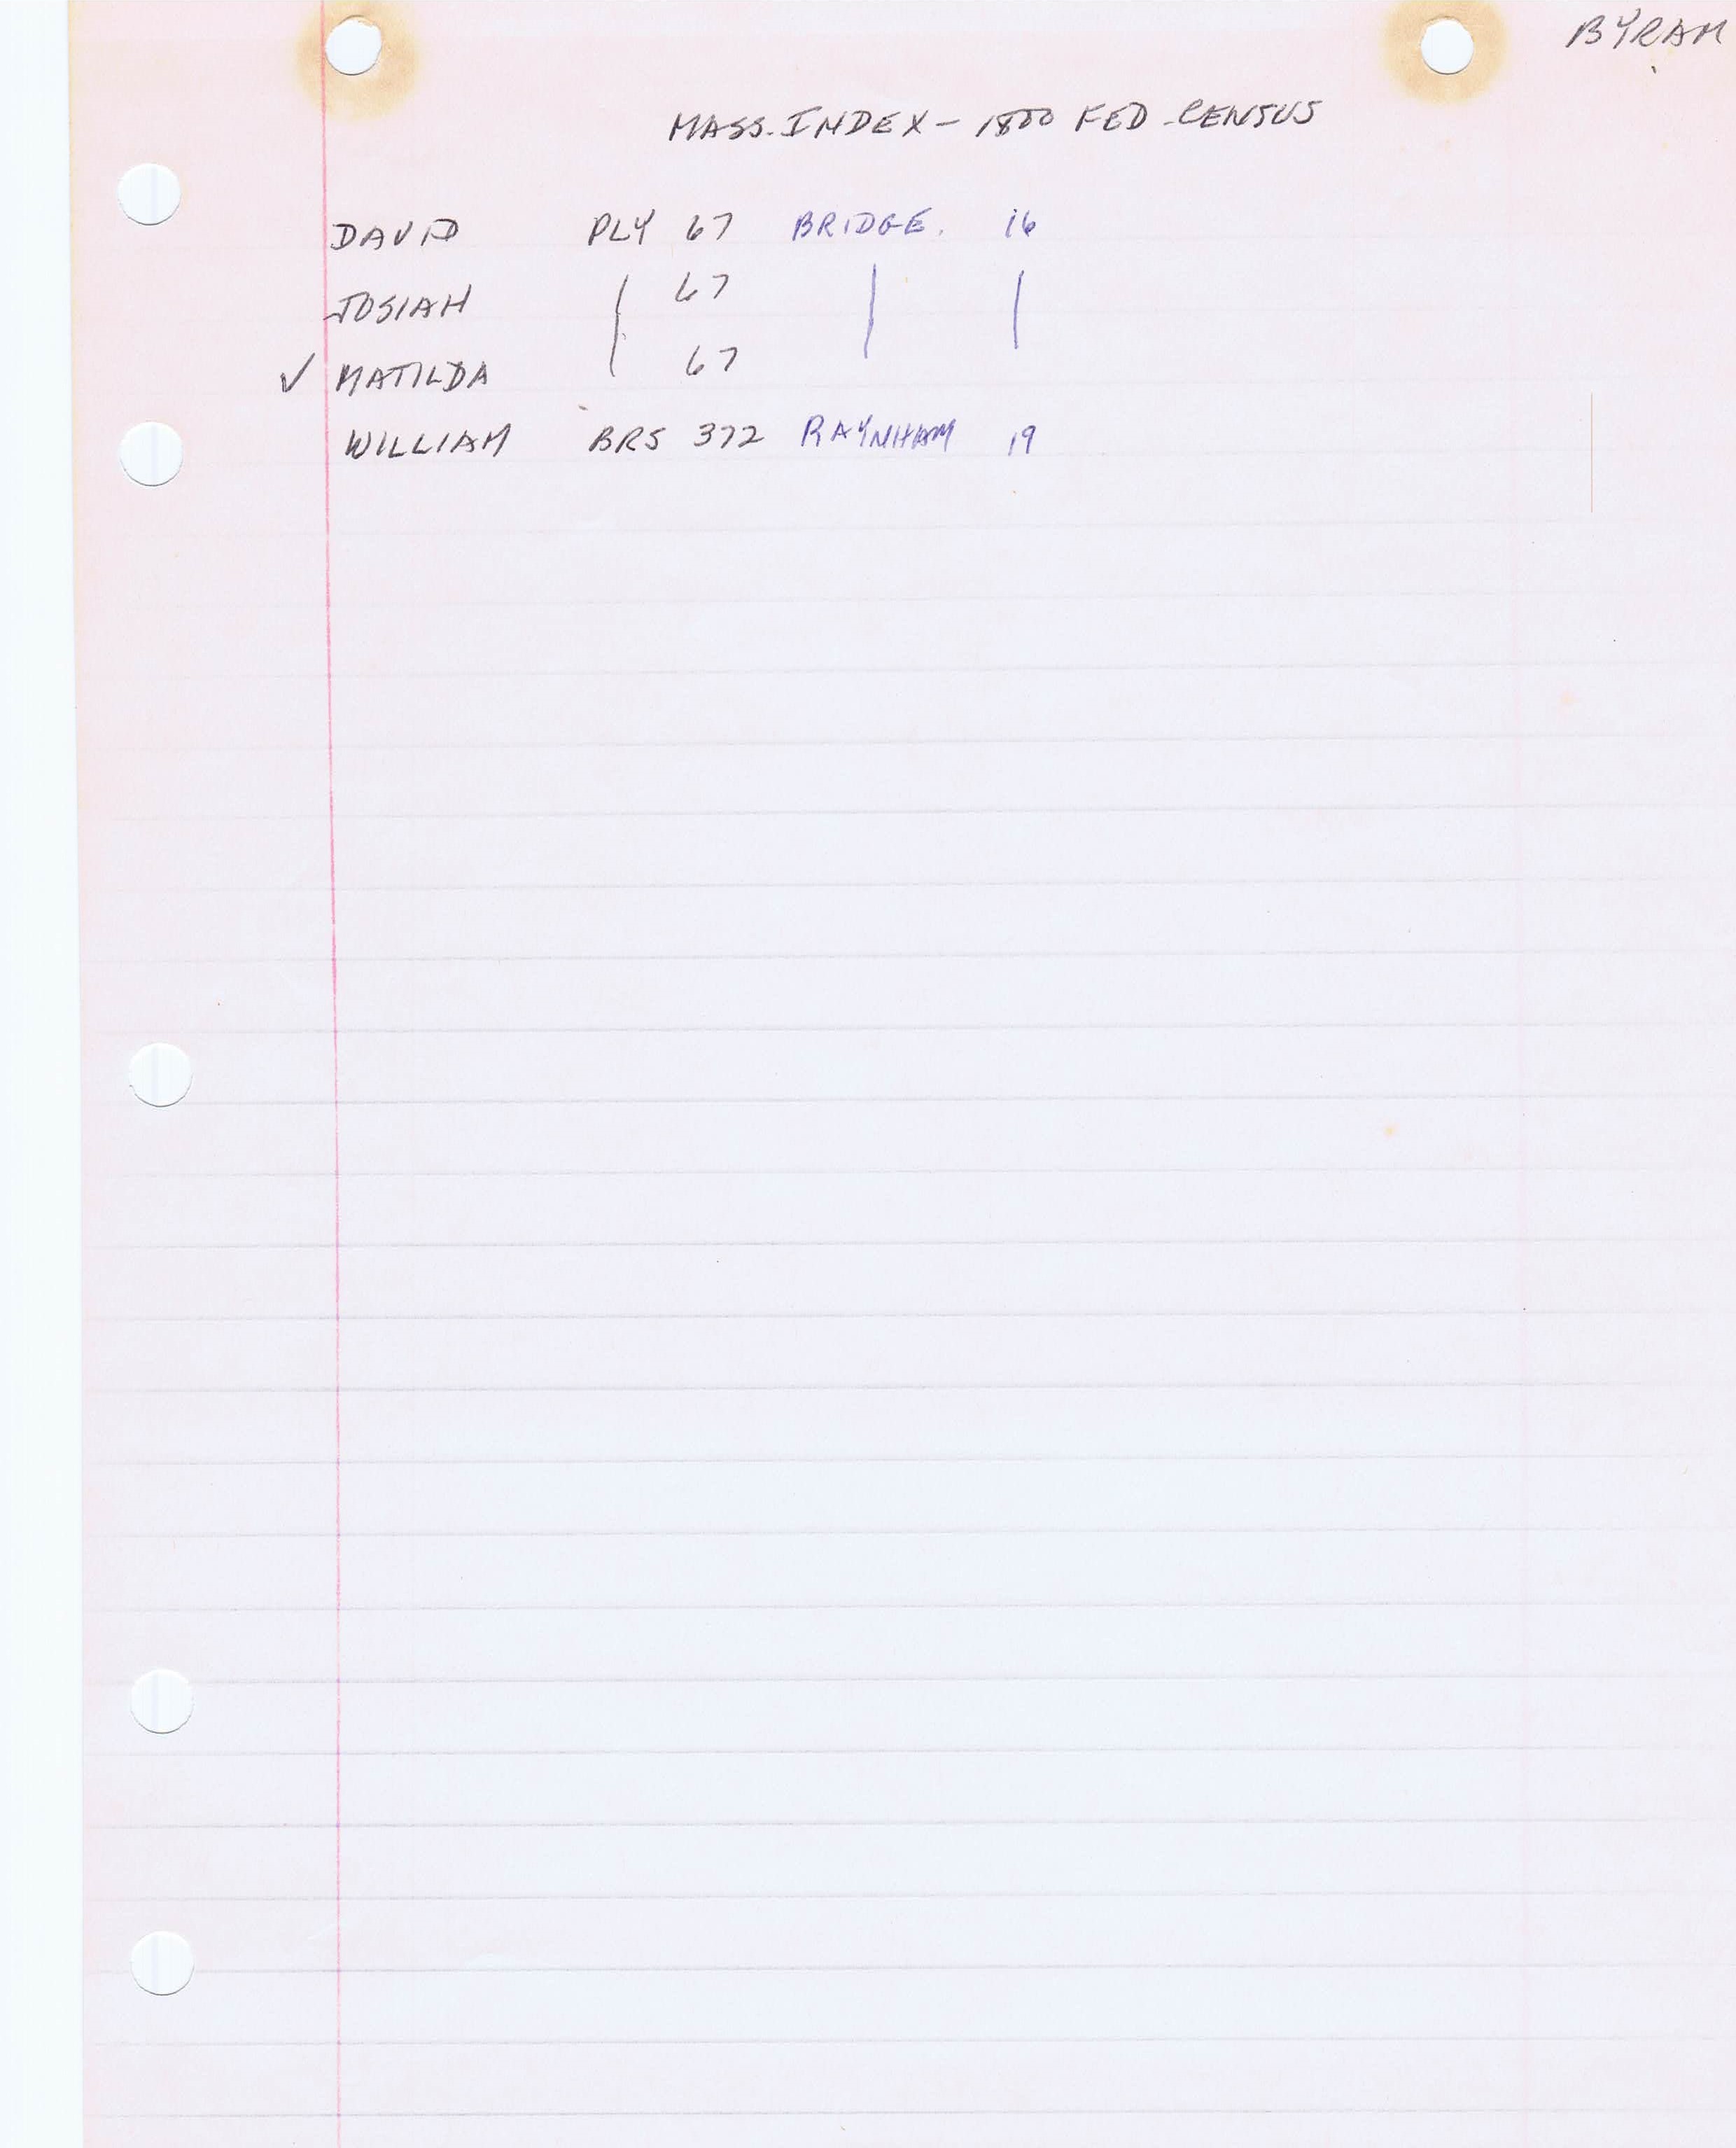 BYRAM
MASS. INDEX - 1800 FED. CENSUS
DAVID PLY 67 BRIDGE. 16
JOSIAH | 67 | |
✓ MATILDA | 67
WILLIAM BRS 372 RAYNHAM 19